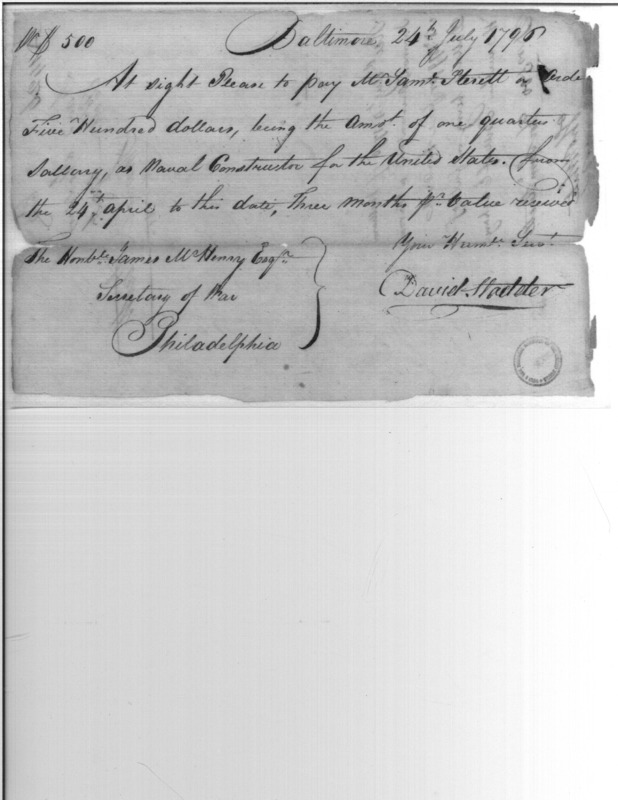 500 Baltimore 24th July 1796
At sight Please to pay Mr. Saml. Sterett or Order
Five Hundred dollars, being the Amot. of one quarters
Sallary, as Naval Constructor for the United States. (from
the 24th. April to this date, Three Months pr. Value received
Your Humbe. Servt.
David Stodder
The Honble. James McHenry Esqr.
Secretary of War
Philadelphia